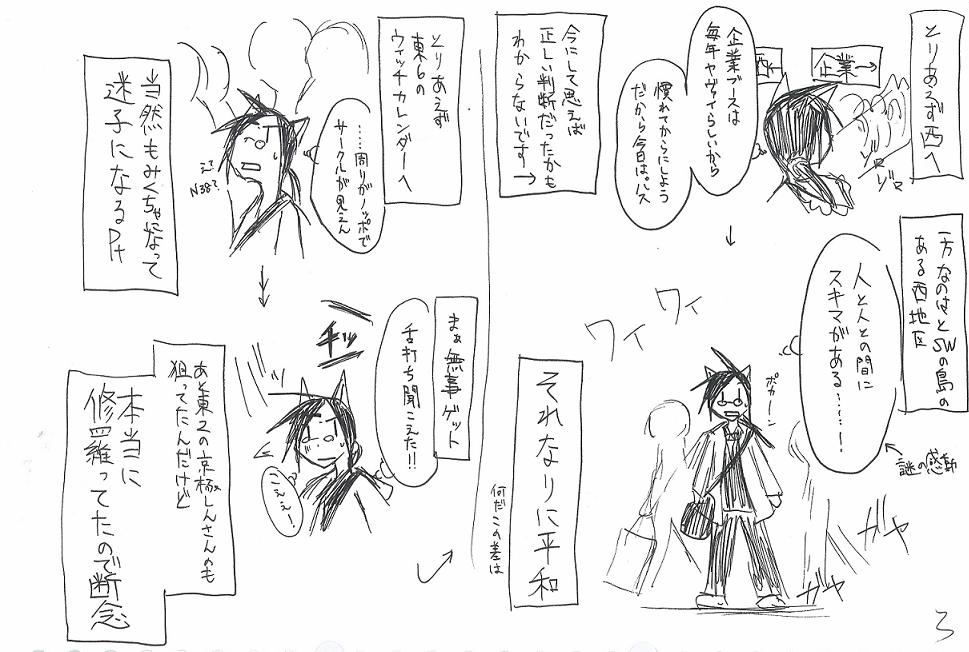 とりあえず西へ
企業→
西←
ゾロ
ゾロ
企業ブースは
毎年ヤヴァイらしいから
慣れてからにしよう
だから今日はパス
今にして思えば
正しい判断だったかも
わからないです→
一方なのはとSWの島の
ある西地区
人と人との間に
スキマがある……!
謎の感動
ワイ
ワイ
ポカーン
ガヤ
ガヤ
それなりに平和
何だこの差は
とりあえず
東6の
ウィッチカレンダーへ
……周りがノッポで
サークルが見えん
えー
N38?
当然もみくちゃになって
迷子になるPt
まぁ無事ゲット
チッ
舌打ち聞こえた!!
こえぇー
あと東2の京極しんさんのも
狙ってたんだけど
本当に
修羅ってたので断念
3